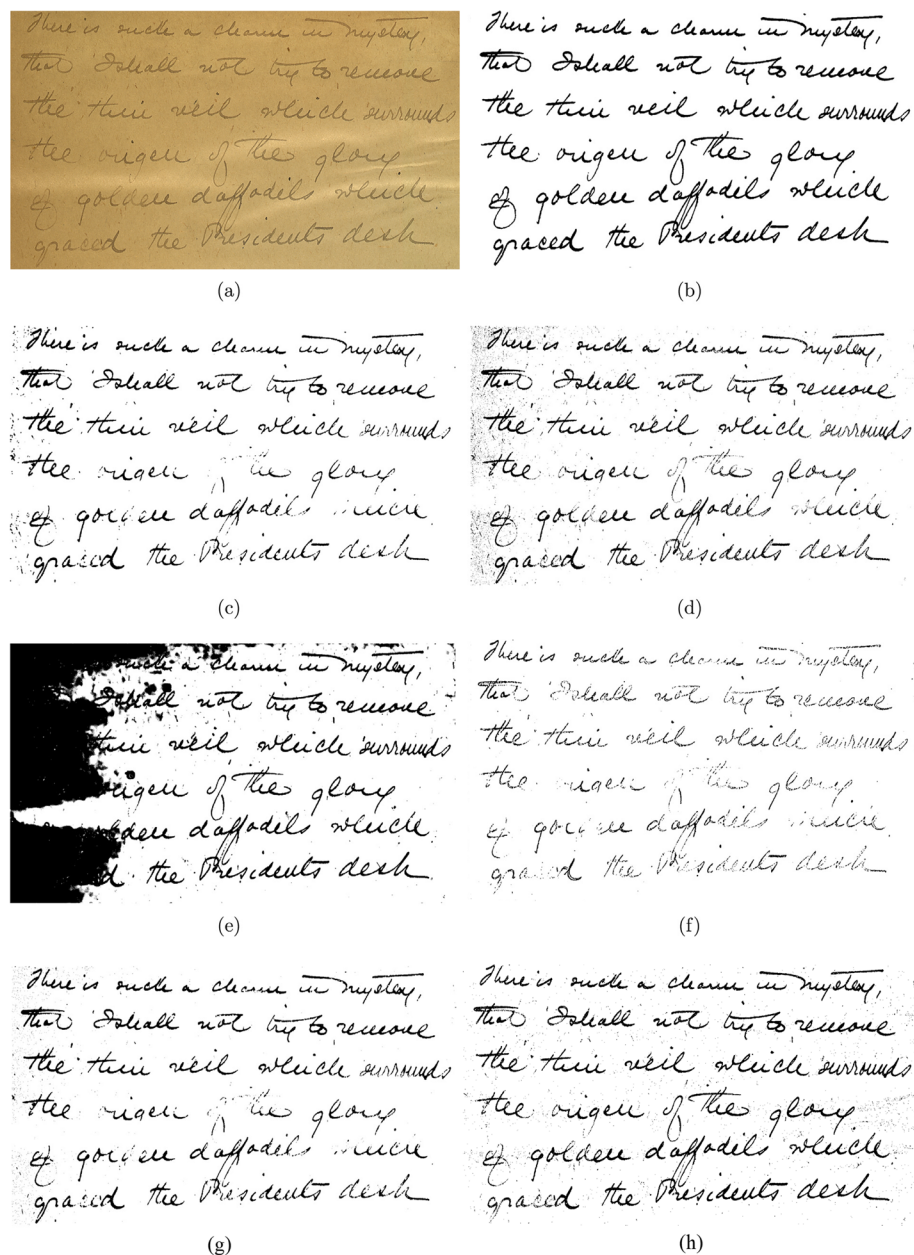 There is such a charm in mystery,
that I shall not try to remove
the thin veil which surrounds
the origin of the glory
of golden daffodils which
graced the Presidents desk
(a)
There is such a charm in mystery,
that I shall not try to remove
the thin veil which surrounds
the origin of the glory
of golden daffodils which
graced the Presidents desk
(b)
There is such a charm in mystery,
that I shall not try to remove
the thin veil which surrounds
the origin of the glory
of golden daffodils which
graced the Presidents desk
(c)
There is such a charm in mystery,
that I shall not try to remove
the thin veil which surrounds
the origin of the glory
of golden daffodils which
graced the Presidents desk
(d)
such a charm in mystery,
I shall not try to remove
thin veil which surrounds
origin of the glory
daffodils which
the Presidents desk
(e)
There is such a charm in mystery,
that I shall not try to remove
the thin veil which surrounds
the origin of the glory
of golden daffodils which
graced the Presidents desk
(f)
There is such a charm in mystery,
that I shall not try to remove
the thin veil which surrounds
the origin of the glory
of golden daffodils which
graced the Presidents desk
(g)
There is such a charm in mystery,
that I shall not try to remove
the thin veil which surrounds
the origin of the glory
of golden daffodils which
graced the Presidents desk
(h)